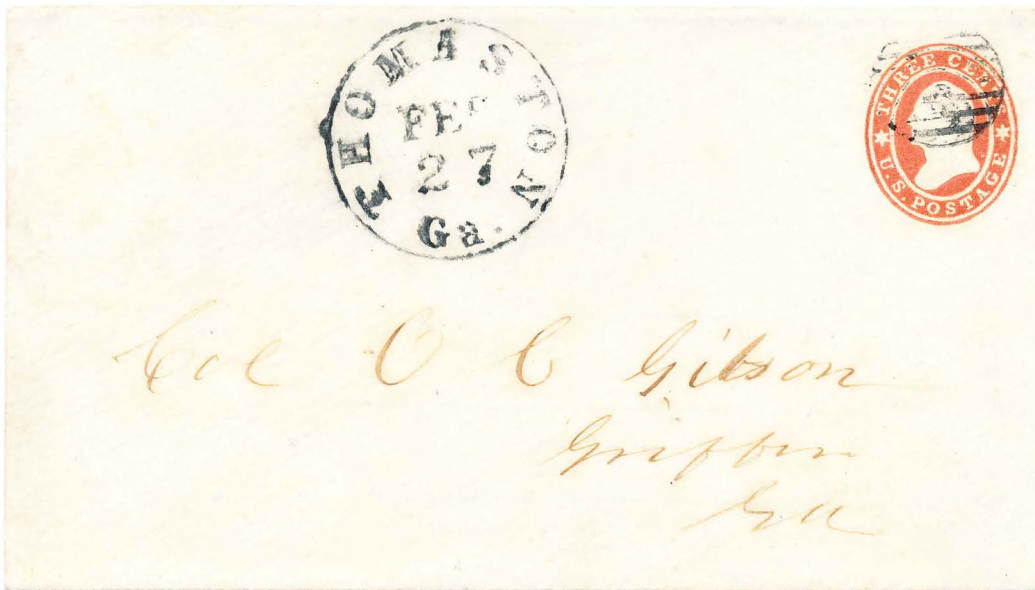 THOMASTON
FEB
27
Ga.
THREE CENTS
U.S. POSTAGE
Col O C Gibson
Griffin
Ga